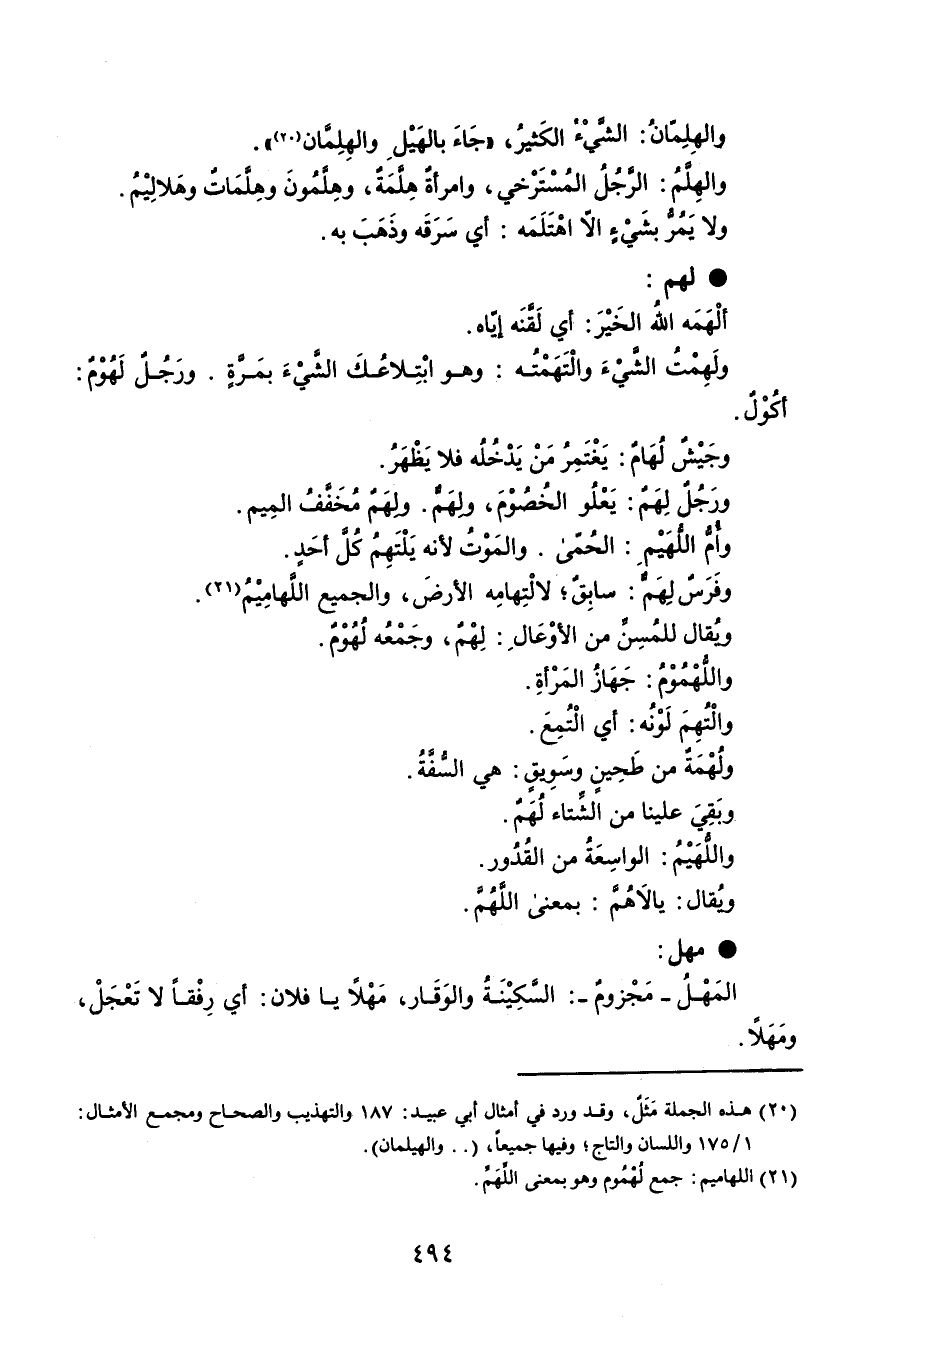 والهِلِمّانُ: الشَّيْءُ الكَثيرُ، «جَاءَ بالهَيْلِ والهِلِمَّان(٢٠)».
والهِلَّمُ: الرَّجُلُ المُسْتَرْخي، وامرأةٌ هِلَّمَةٌ، وهِلَّمُونَ وهِلَّمَاتٌ وهَلالِيْمُ.
ولا يَمُرُّ بشَيْءٍ الّا اهْتَلَمَه : أي سَرَقَه وذَهَبَ به.
● لهم :
ألْهَمَه اللهُ الخَيْرَ: أي لَقَّنَه إيّاه.
ولَهِمْتُ الشَّيْءَ والْتَهَمْتُـه : وهـو ابْتِـلاعُـكَ الشَّيْءَ بمَـرَّةٍ . ورَجُـلٌ لَهُوْمٌ:
أكُوْلٌ.
وجَيْشٌ لُهَامٌ: يَغْتَمِرُ مَنْ يَدْخُلُه فلا يَظْهَرُ.
ورَجُلٌ لِهَمٌ: يَعْلُو الخُصُوْمَ، ولِهَمٌّ. ولِهَمٌ مُخَفَّفُ الميم.
وأُمُّ اللُّهَيْمِ : الحُمّىٰ . والمَوْتُ لأنه يَلْتَهِمُ كُلَّ أحَدٍ.
وفَرَسٌ لِهَمٌّ: سابِقٌ؛ لالْتِهامِه الأرضَ، والجميع اللَّهامِيْمُ(٢١).
ويُقال للمُسِنِّ من الأوْعَالِ: لِهْمٌ، وجَمْعُه لُهُوْمٌ.
واللُّهْمُوْمُ: جَهَازُ المَرْأةِ.
والْتُهِمَ لَوْنُه: أي الْتُمِعَ.
ولُهْمَةٌ من طَحِينٍ وسَوِيقٍ: هي السُّفَّةُ.
وبَقِيَ علينا من الشِّتاء لُهَمٌ.
واللُّهَيْمُ: الواسِعَةُ من القُدُور.
ويُقال: يالَاهُمَّ : بمعنىٰ اللَّهُمَّ.
● مهل:
المَهْـلُ ـ مَجْزومٌ ـ: السَّكِيْنَـةُ والوَقَـار، مَهْلًا يـا فلان: أي رِفْقـاً لا تَعْجَلْ،
ومَهَلًا.
(٢٠) هـذه الجملة مَثَلٌ، وقـد ورد في أمثال أبي عبيـد: ١٨٧ والتهذيب والصحـاح ومجمـع الأمثـال:
١/١٧٥ واللسان والتاج؛ وفيها جميعاً، (.. والهيلمان).
(٢١) اللهاميم: جمع لُهْمُوم وهو بمعنى اللِّهَمِّ.
٤٩٤